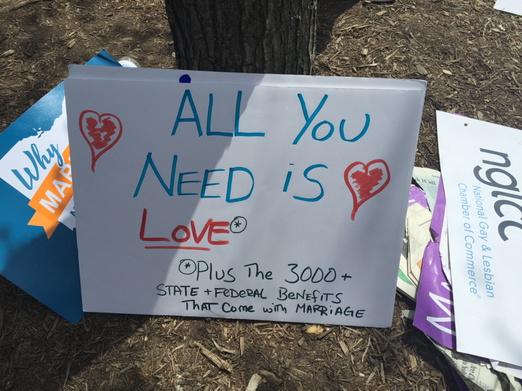 ALL YOU
NEED IS
LOVE*
*Plus The 3000+
STATE + FEDERAL BENEFITS
THAT COME WITH MARRIAGE
Why
MAR
nglcc
National Gay & Lesbian
Chamber of Commerce